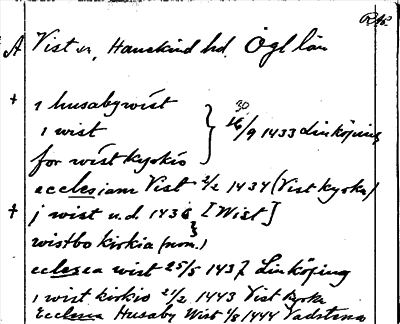 A Vist sn, Hanekind hd. Ögl län
+ i husabywist
i wist } 30/9 1433 Linköping
for wist kyrkio
ecclesiam Vist 2/2 1434 (Vist kyrka)
+ j wist u.d. 1436 [Wist]
wistbo kirkia (nom.)
ecclesea wist 25/5 1437 Linköping
i wist kirkio 21/2 1443 Vist kyrka
Ecclesia Husaby Wist 1/8 1444 Vadstena